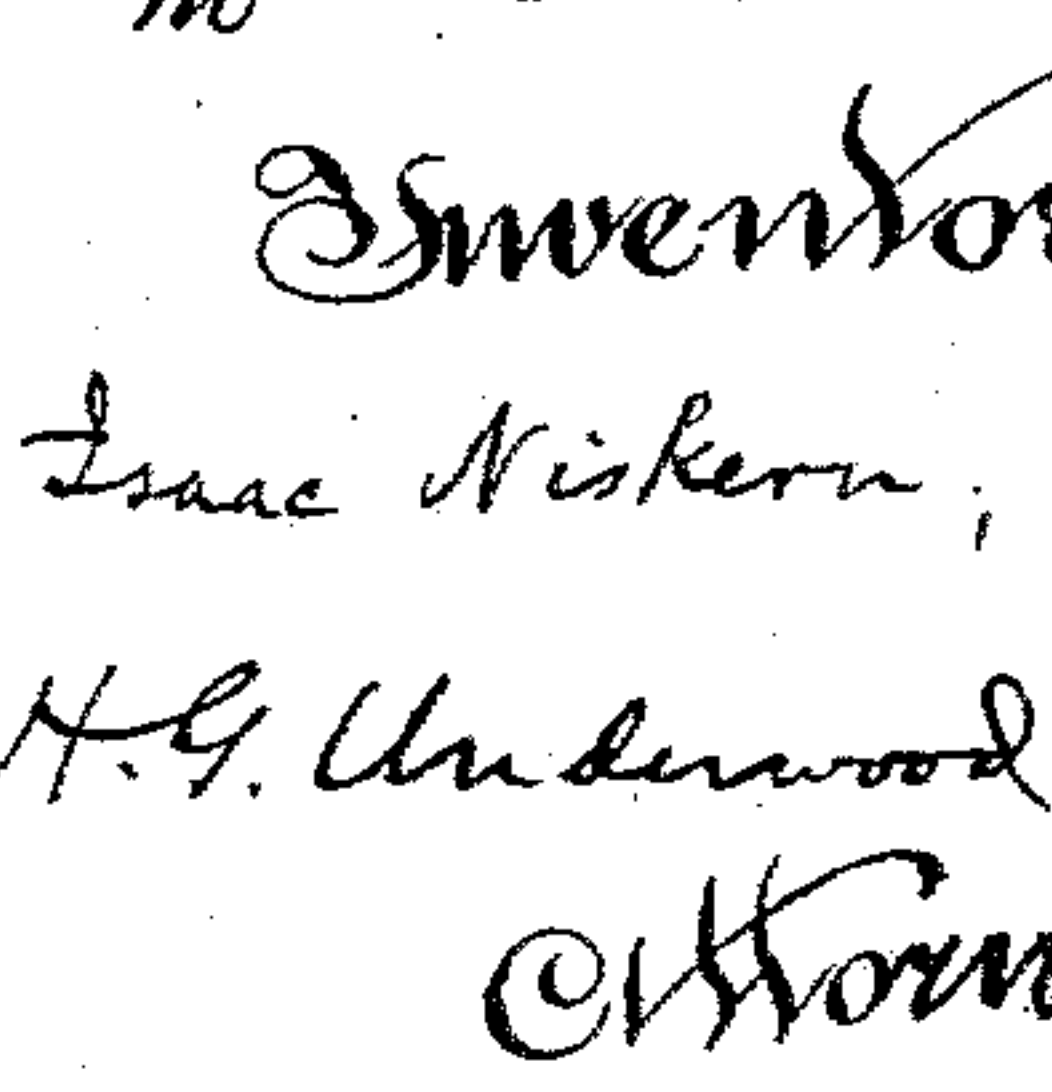 Inventor
Isaac Niskern,
H. G. Underwood
Attorn